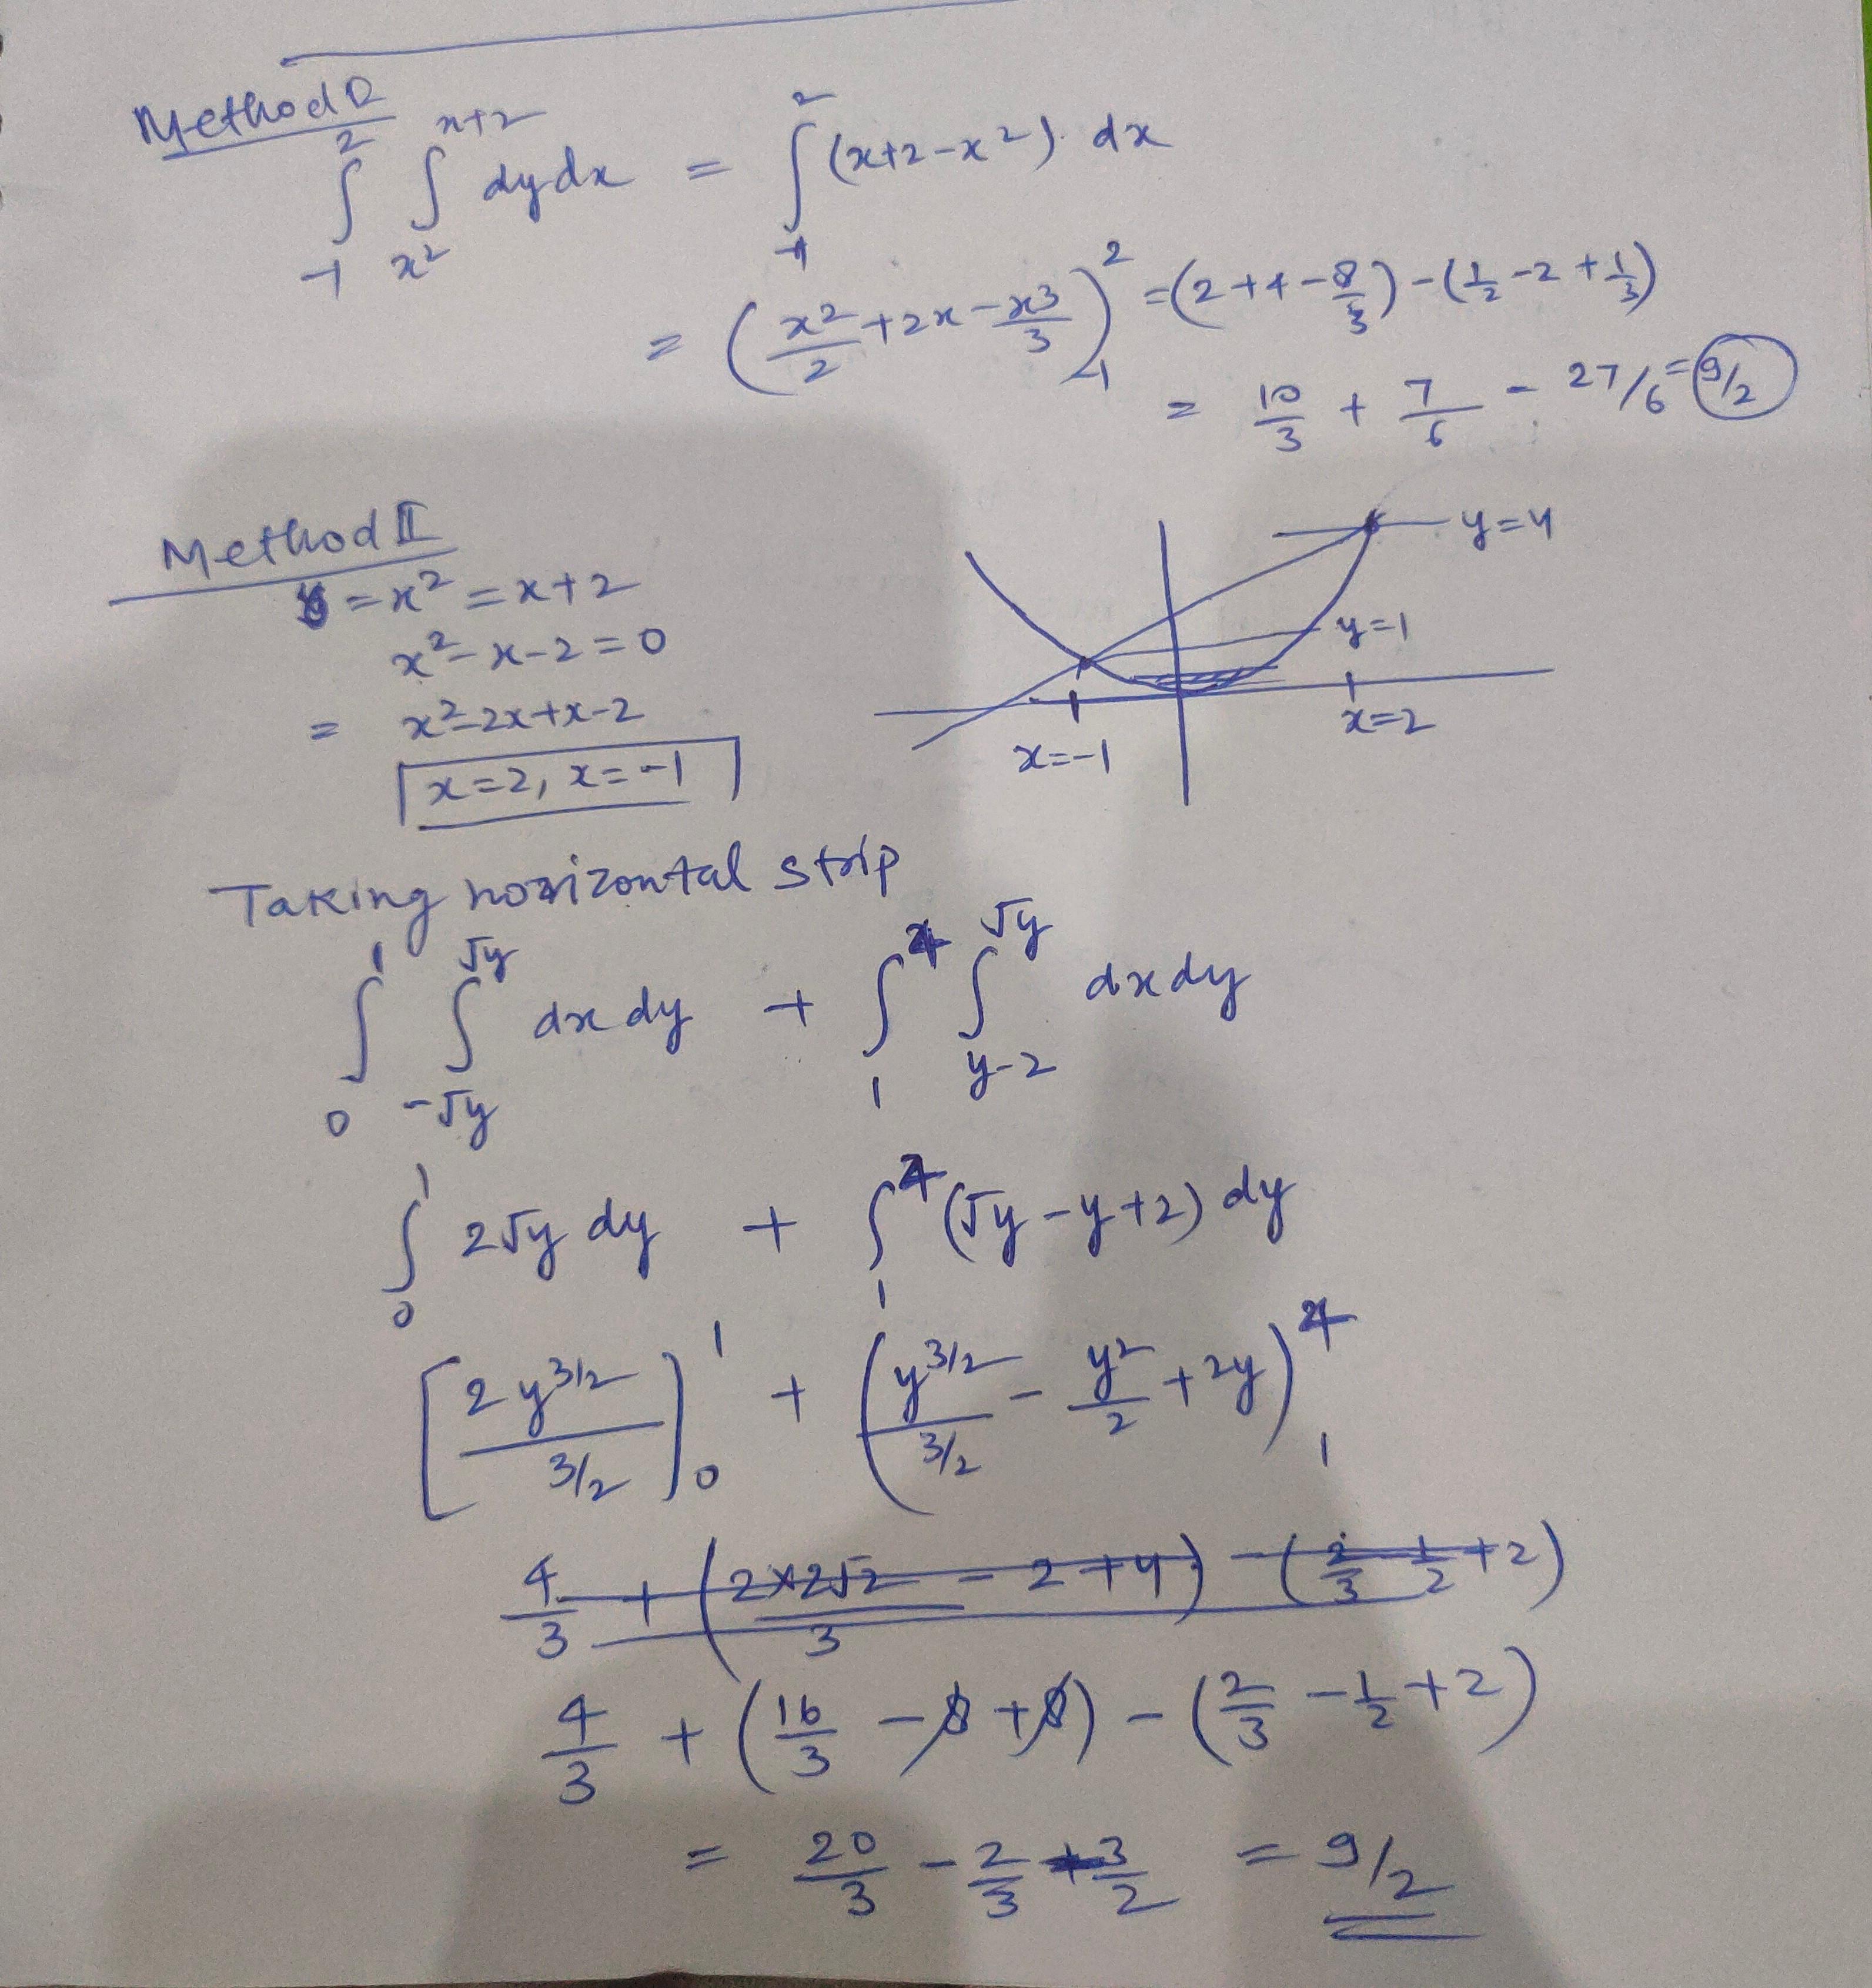 Method I
∫_{-1}^{2} ∫_{x²}^{x+2} dydx = ∫_{-1}^{2} (x+2-x²). dx
= (x²/2 + 2x - x³/3)_{-1}^{2} = (2+4-8/3) - (1/2 - 2 + 1/3)
= 10/3 + 7/6 = 27/6 = 9/2
Method II
y = x² = x+2
x² - x - 2 = 0
= x² - 2x + x - 2
x=2, x=-1
y=4
y=1
x=-1
x=2
Taking horizontal strip
∫_{0}^{1} ∫_{-√y}^{√y} dx dy + ∫_{1}^{4} ∫_{y-2}^{√y} dx dy
∫_{0}^{1} 2√y dy + ∫_{1}^{4} (√y - y + 2) dy
[2y^{3/2} / 3/2]_{0}^{1} + (y^{3/2} / 3/2 - y²/2 + 2y)_{1}^{4}
4/3 + (2×2√2/3 - 2 + 4) - (2/3 - 1/2 + 2)
4/3 + (16/3 - 8 + 8) - (2/3 - 1/2 + 2)
= 20/3 - 2/3 - 3/2 = 9/2